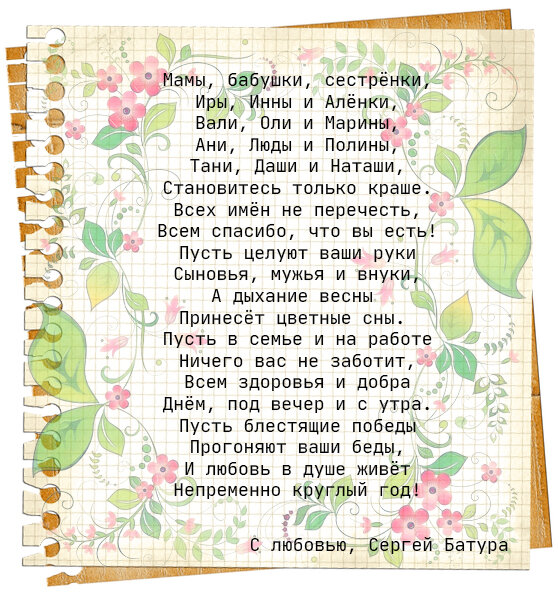 Мамы, бабушки, сестрёнки,
Иры, Инны и Алёнки,
Вали, Оли и Марины,
Ани, Люды и Полины,
Тани, Даши и Наташи,
Становитесь только краше.
Всех имён не перечесть,
Всем спасибо, что вы есть!
Пусть целуют ваши руки
Сыновья, мужья и внуки,
А дыхание весны
Принесёт цветные сны.
Пусть в семье и на работе
Ничего вас не заботит,
Всем здоровья и добра
Днём, под вечер и с утра.
Пусть блестящие победы
Прогоняют ваши беды,
И любовь в душе живёт
Непременно круглый год!
С любовью, Сергей Батура